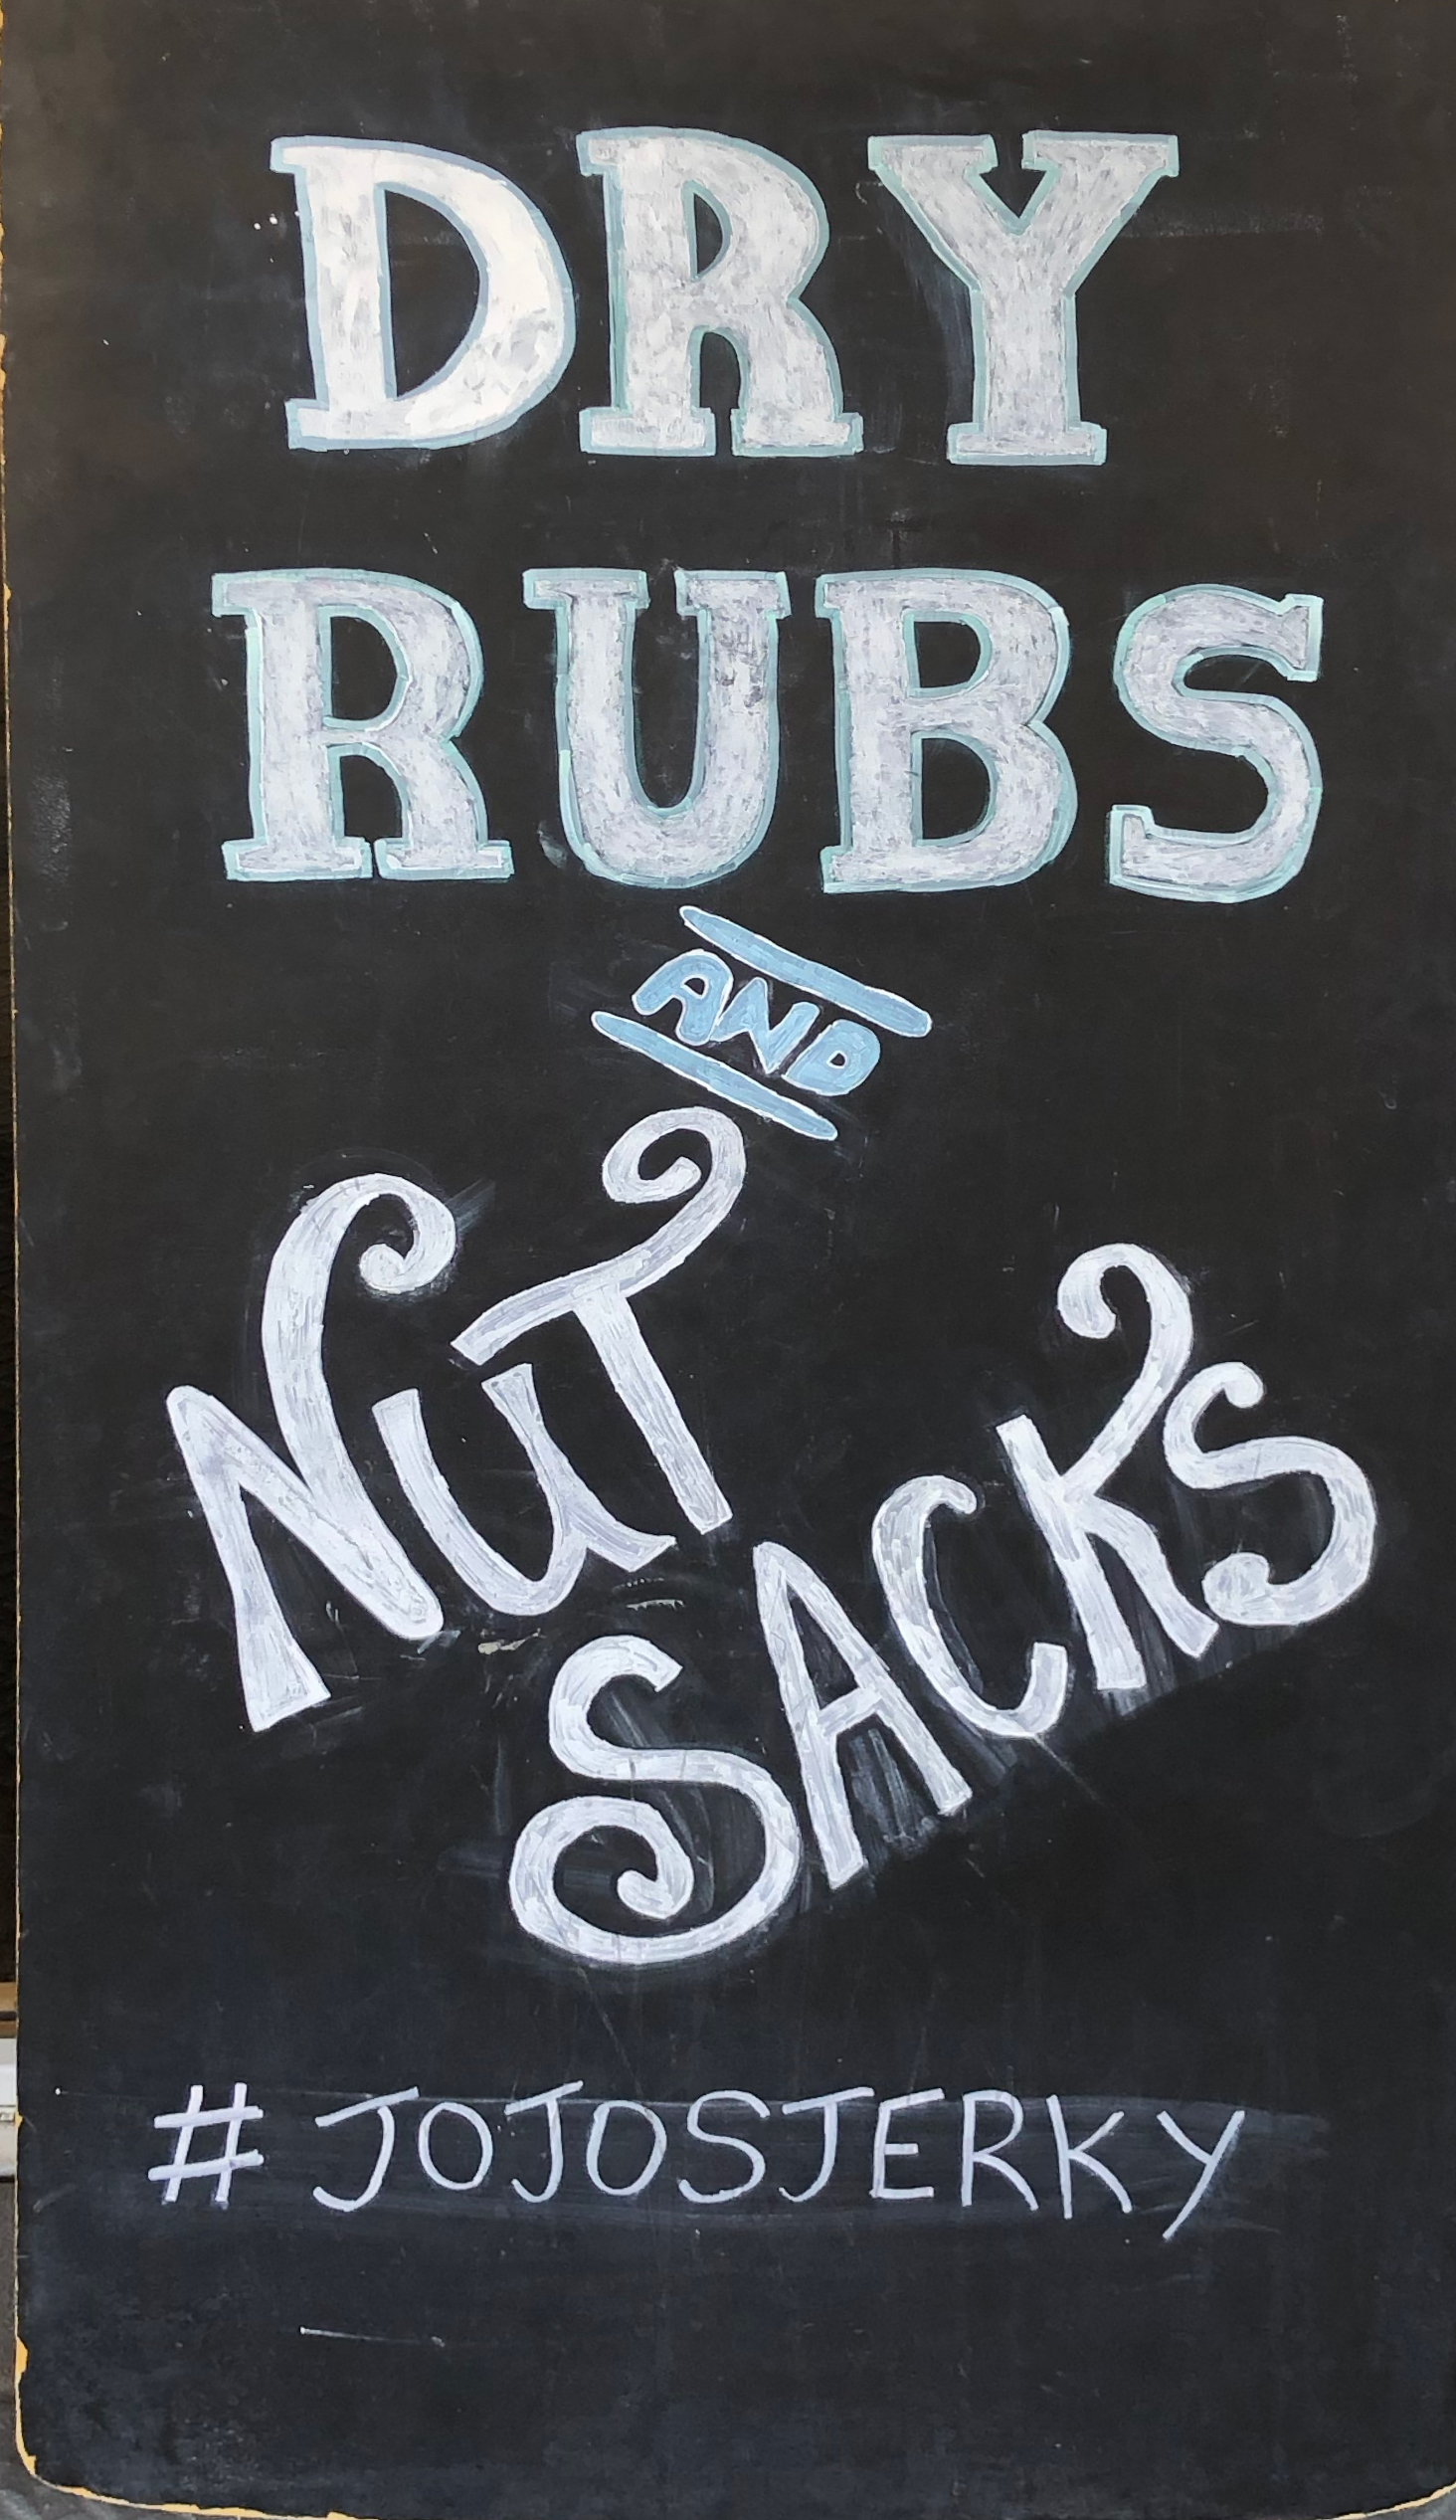 DRY
RUBS
AND
NUT
SACKS
# JOJOSJERKY